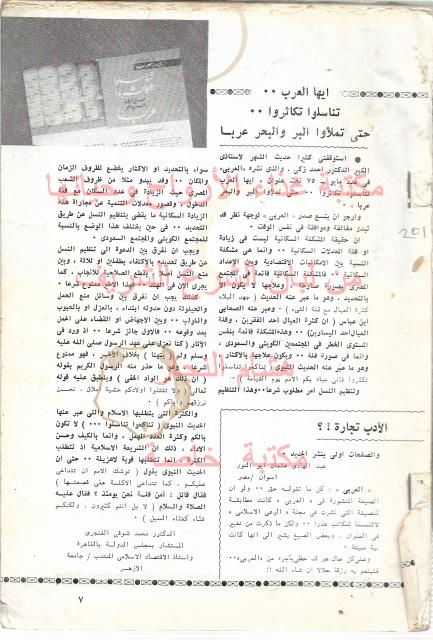 ايها العرب ٠٠
تناسلوا تكاثروا ٠٠
حتى تملأوا البر والبحر عربا
● استوقفني كثيرا حديث الشهر لاستاذي
الكبير الدكتور احمد زكي ، والذي نشره «العربي»
في عدد مايو ٧٥ تحت عنوان « ايها العرب
تناسلوا تكاثروا ٠٠ حتى تملأوا البر والبحر
عربا » ٠
وارجو ان يتسع صدر « العربي » لوجهة نظر قد
تبدو مخالفة وموافقة في نفس الوقت ٠
ان حقيقة المشكلة السكانية ليست في زيادة
او قلة المعدلات السكانية ٠٠ وانما هي مشكلة
النسبة بين الامكانيات الاقتصادية وبين الاعداد
السكانية ٠ فالمشكلة السكانية قائمة في المجتمع
المصري بصورة صارخة ٠٠ وعلاجها لا يكون الا
بالتحديد ، وهو ما عبر عنه الحديث ( جهد البلاء
كثرة العيال مع قلة الشيء ) ٠٠ وعبر عنه الصحابي
ابن عباس ( ان كثرة العيال احد الفقرين ، وقلة
العيال احد اليسارين) ٠٠ وهذه المشكلة قائمة بنفس
المستوى الخطر في المجتمعين الكويتي والسعودي ،
وانما في صورة قلة ٠٠ ويكون علاجها بالاكثار ،
وهو ما عبر عنه الحديث النبوي ( تناكحوا تناسلوا
تكثروا فاني مباه بكم الامم يوم القيامة ) ٠
وتنظيم النسل امر مطلوب شرعا ٠٠ وهذا التنظيم
سواء بالتحديد او الاكثار يخضع لظروف الزمان
والمكان ٠٠ وقد يبدو مثلا من ظروف الشعب
المصري حيث الزيادة في عدد السكان مع قلة
الدخول ، وقصور معدلات التنمية عن مجاراة هذه
الزيادة السكانية ما يقتضي بتنظيم النسل عن طريق
التحديد ٠٠ في حين يختلف هذا الوضع بالنسبة
للمجتمع الكويتي والمجتمع السعودي ٠
ويجب ان نفرق بين الدعوة الى تنظيم النسل
عن طريق تحديده بالاكتفاء بطفلين او ثلاثة ، وبين
منع النسل اصلا بقطع الصلاحية للانجاب ، كما
يجري الان في الهند ٠ فهذا الاخير ممنوع شرعا ٠
كذلك يجب ان نفرق بين وسائل منع الحمل
والحيلولة دون حدوثه ابتداء ، بالعزل او بالحبوب
واللولب ٠٠ وبين الاجهاض او القضاء على الحمل
بعد وقوعه ٠٠ فالاول جائز شرعا ٠٠ اذ ورد في
الاثار ( كنا نعزل على عهد الرسول صلى الله عليه
وسلم ولم ينهنا ) بخلاف الاخير ، فهو ممنوع
شرعا ، وهو ما حذر منه الرسول الكريم بقوله
( ان ذلك هو الوأد الخفي ) وينطبق عليه قوله
تعالى ( ولا تقتلوا اولادكم خشية املاق ، نحن
نرزقهم واياكم ) ٠
والكثرة التي يتطلبها الاسلام والتي عبر عنها
الحديث النبوي ( تناكحوا تناسلوا ٠٠٠ ) لا تكون
بالكم وكثرة العدد المهمل ، وانما بالكيف وحسن
الاداء ، ذلك ان الشريعة الاسلامية اذ تتطلب
الكثرة انما تتطلبها قوية لا هزيلة ٠٠ حتى ان
الحديث النبوي يقول ( توشك الامم ان تتداعى
عليكم ، كما تتداعى الاكلة على قصعتها )
فقال قائل : أمن قلة نحن يومئذ ؟ فقال عليه
الصلاة والسلام ( بل انتم كثيرون ، ولكنكم
غثاء كغثاء السيل ) ٠
الدكتور محمد شوقي الفنجري
المستشار بمجلس الدولة بالقاهرة
واستاذ الاقتصاد الاسلامي المنتدب / جامعة
الازهر
الأدب تجارة !؟
والصفحات اولى بنشر الجديد ٠
عبد الهادي عثمان ابو النور
اسوان / مصر
« العربي » : كل ما تقوله حق ٠٠ ولو ان
القصيدة المنشورة في « العربي » كانت مطابقة
للقصيدة التي نشرت في مجلة «الوعي الاسلامي»
لالتمسنا للكاتب عذرا ٠٠ ولكن ما ذكرت من تغيير
في العنوان ، وبعض الصيغ يشير الى انها كانت
نية مبيتة ٠
وعلى كل حال هو قد حظي بأجره من «العربي»٠٠٠
فليطعم به رزقا حلالا ان شاء الله !!
٧